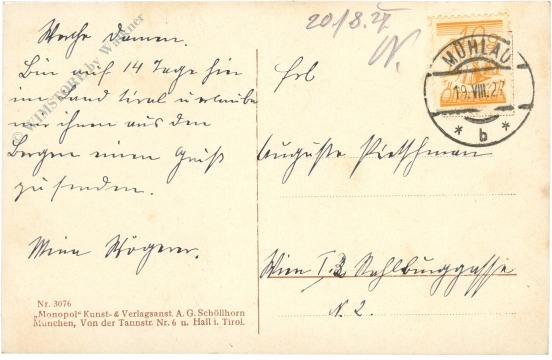 20/8.27
N.
10
MÜHLAU
19.VIII.27
* b *
Werthe Damen.
Bin auf 14 Tage hier
im Land tirol u erlaube
mir ihnen aus den
Bergen einen Gruß
zu senden.
Mina
Frl
Auguste Pietschman
Wien I.
N. 2.
© WIHISTORY by Wagner
Nr. 3076
„Monopol" Kunst- & Verlagsanst. A. G. Schöllhorn
München, Von der Tannstr. Nr. 6 u. Hall i. Tirol.